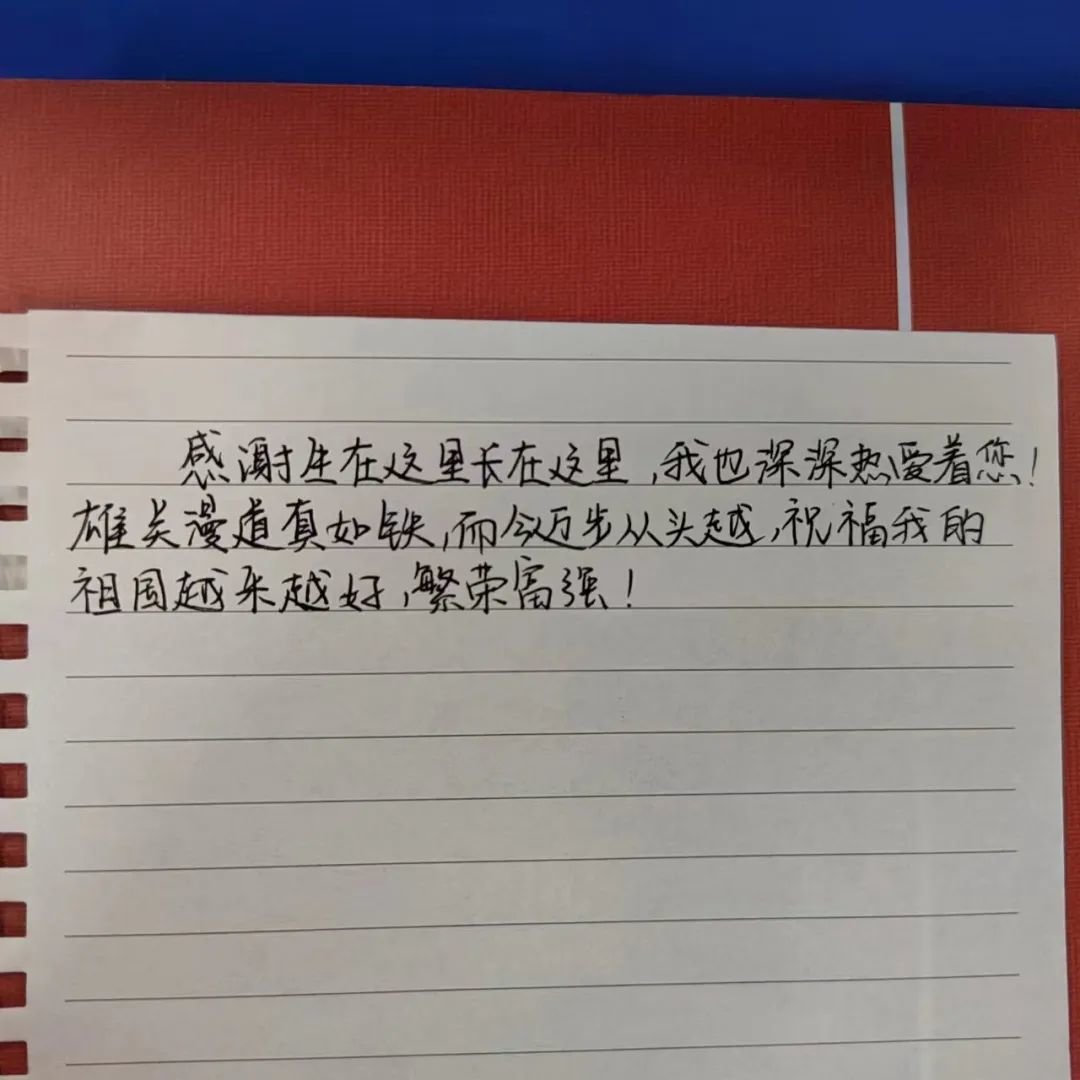 感谢生在这里长在这里,我也深深热爱着您!
雄关漫道真如铁,而今迈步从头越,祝福我的
祖国越来越好,繁荣富强!